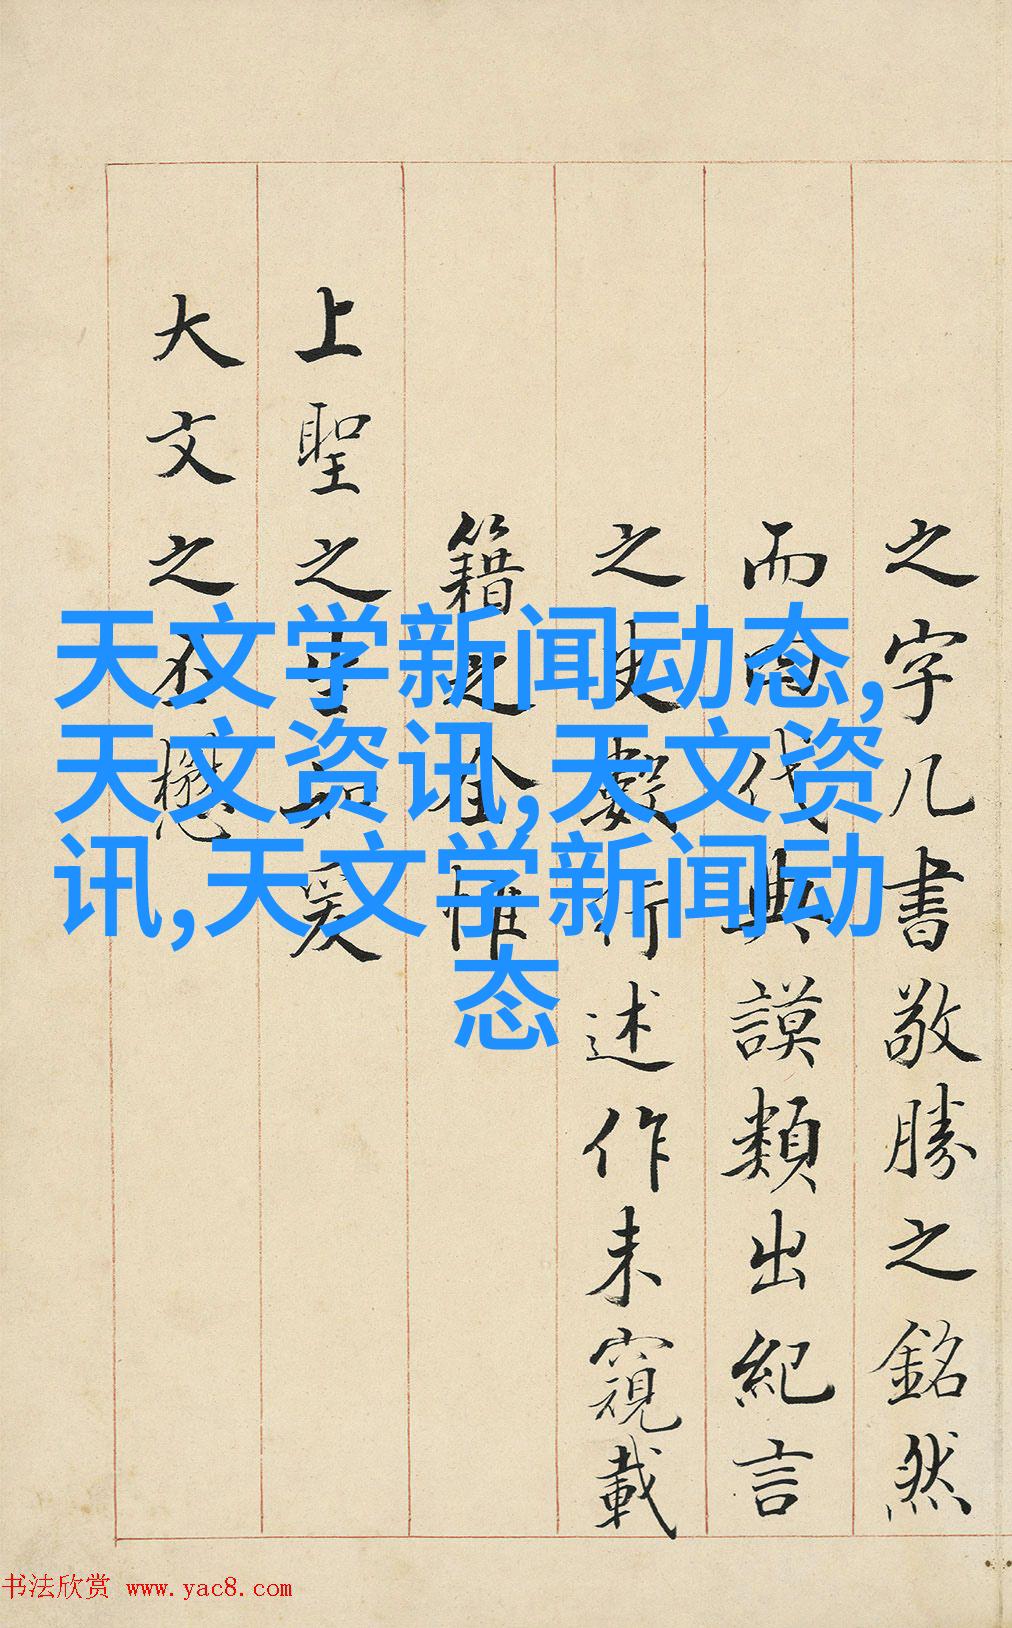 之字几書敬勝之銘然
而四代典謨類出紀言
之史數行述作未窺載
籍之全惟
上聖之生知爰
大文之丕懋
天文学新闻动态,
天文资讯,天文资
讯,天文学新闻动
态
书法欣赏 www.yac8.com